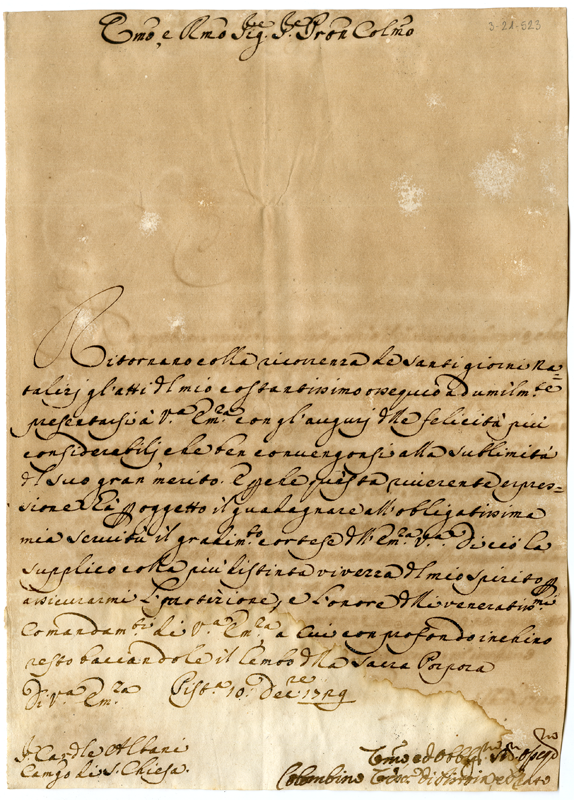 3-21-523
Emo, e Rmo Sige. Sige. Pron Colmo
Ritornano colla ricorrenza de santi giorni Na=
talizj gl'atti dl mio costantissimo ossequio ad umilmte
presentarsi à Va. Emza. con gl'augurj dlle felicità più
considerabilj che ben convengonsi alla sublimità
dl suo gran merito. E che questa riverente espres=
sione oggetto il guadagnare all'obligatissima
mia servitù il gradimto. cortese dll'Emza. Va. Di ciò la
supplico colla più distinta vivezza dl mio spirito
assicurarmi protezione, e l'onore dlli veneratissmi
Comandamti. di Va. Emza. a cui con profondo inchino
resto baciandole il Lembo dlla Sacra Porpora
Di Va. Emza. Pista. 10. Decre 1729
S. Cardle Albani
Camgo di S. Chiesa.
Umo ed Obbmo
Colombino di Pistoia e Prato